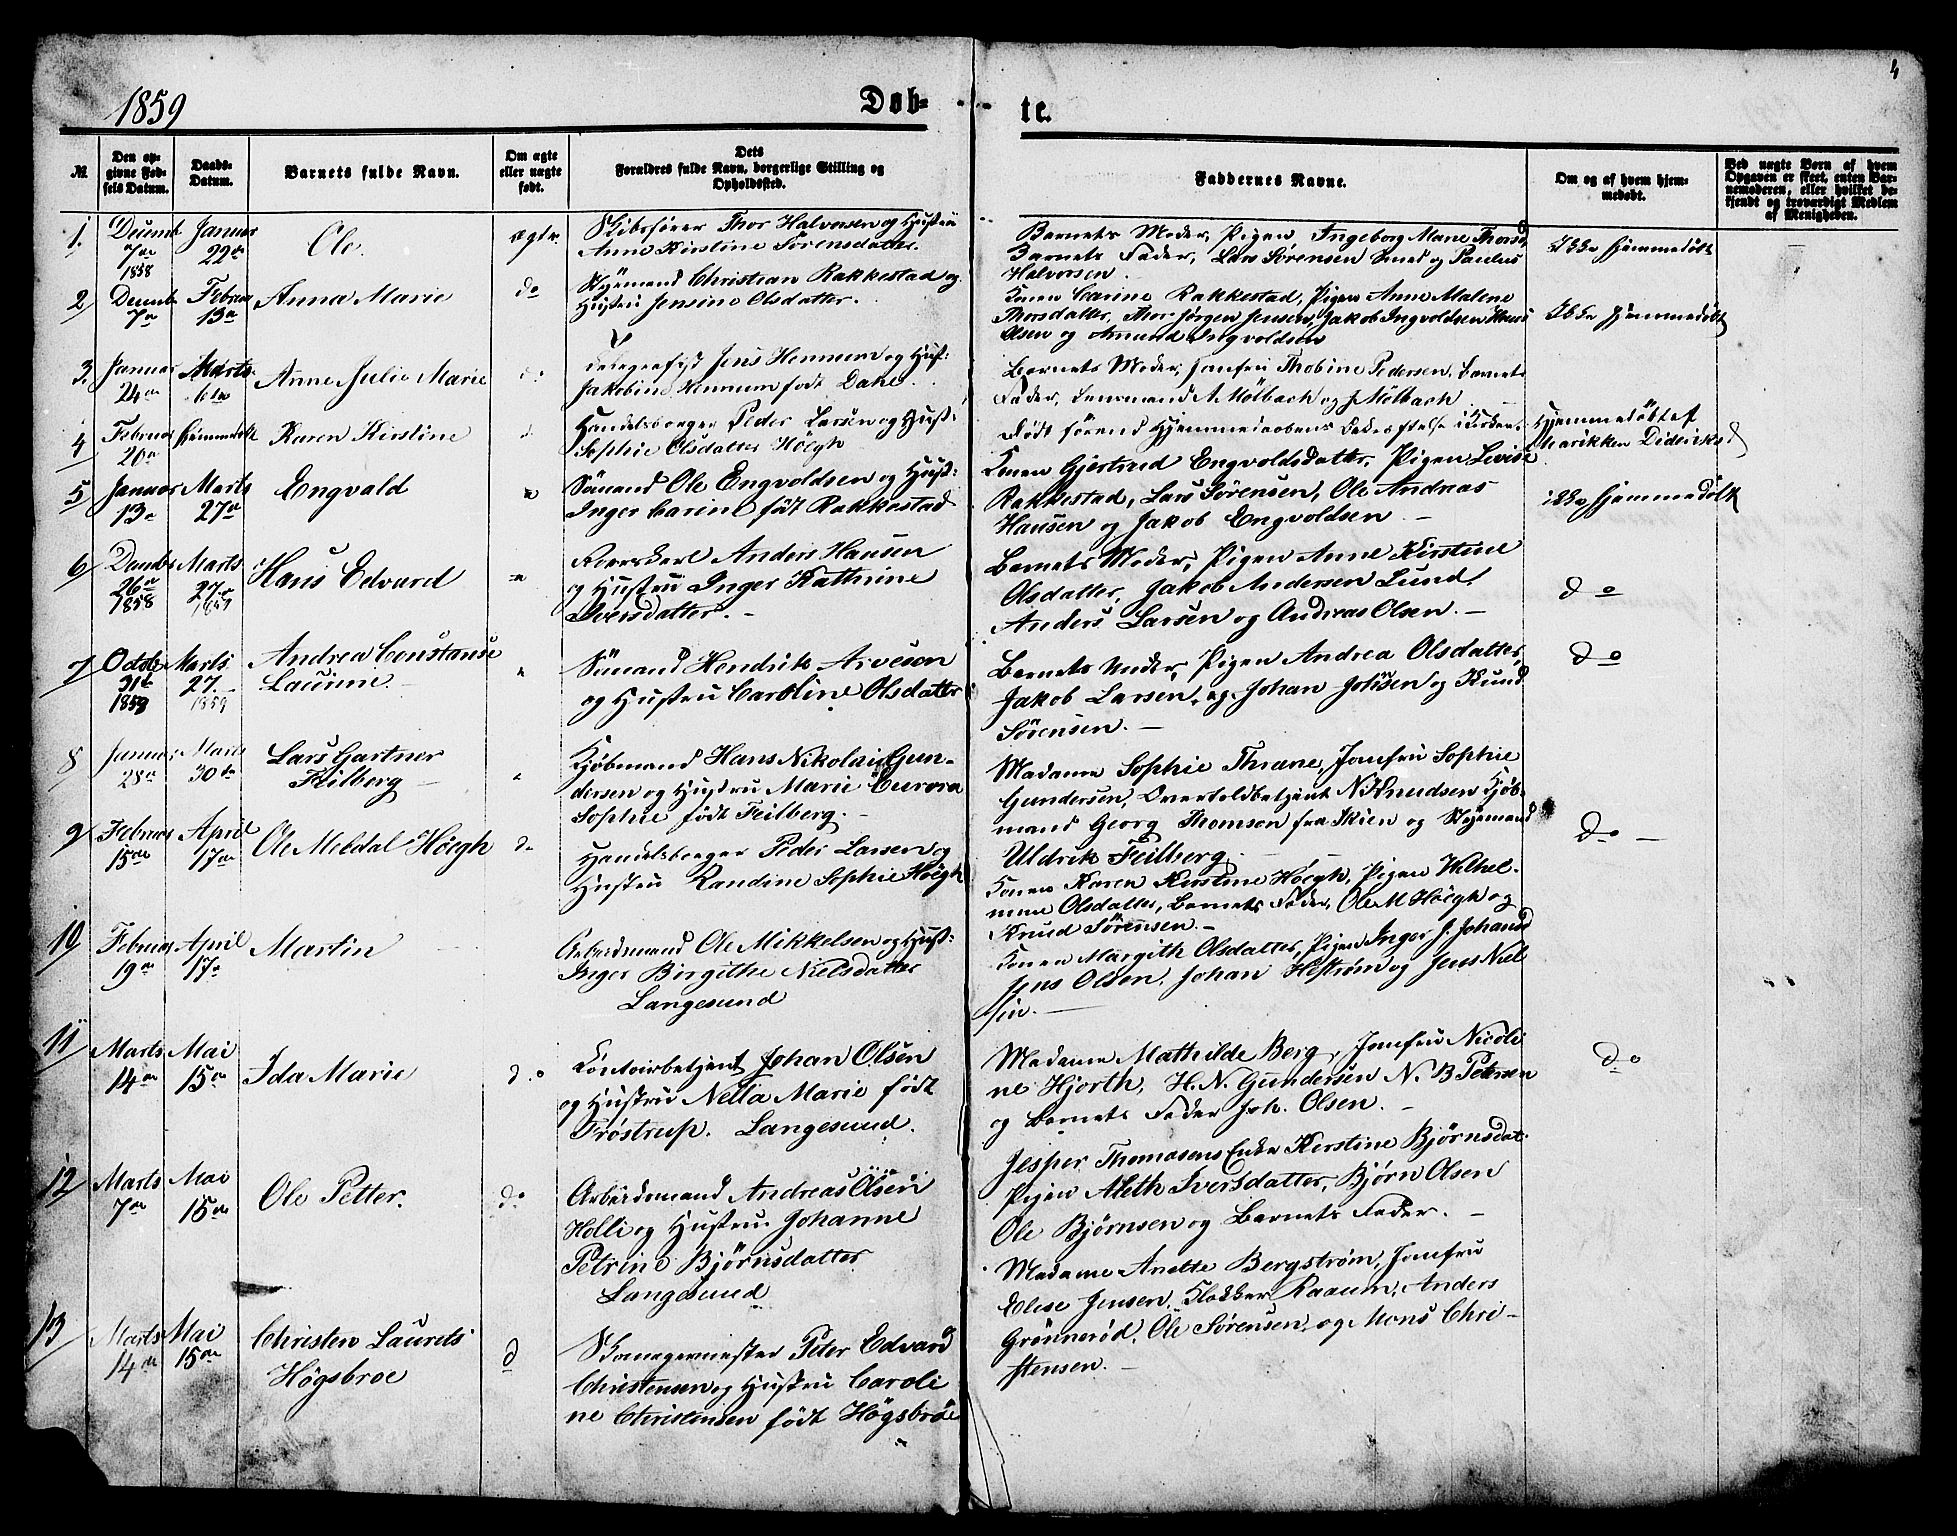 4
1859
Døb-
te.
№
Den op-
givne Fød-
sels Datum.
Daabs-
Datum.
Barnets fulde Navn.
Om ægte
eller uægte
født.
Dets
Forældres fulde Navn, borgerlige Stilling og
Opholdssted.
Faddernes Navne.
Om og af hvem hjem-
medøbt.
Ved uægte Born af hvem
Opgaven er skeet, enten Bar-
nemoderen, eller hvilket be-
kjendt og troværdigt Medlem
af Menigheden.
1.
Decemb
7de
1858
Januar
22de
Ole.
ægte.
Skibsfører Thor Halvorsen og Hustru
Anne Kirstine Sörensdatter.
Barnets Moder, Pigen Ingeborg Marie Thorsd
Barnets Fader, Lars Sørensen Smed og Paulus
Halvorsen.
hjemmedøbt
2
Decemb
7de
Februar
13de
Anna Marie
do
Styrmand Christian Rakkestad og
Hustru Jensine Olsdatter.
Konen Carine Rakkestad, Pigen Anne Malene
Thorsdatter, Thor Jørgen Jensen, Jakob Ingvoldsen
Olsen og Amund Ingvoldsen
hjemmedøbt
3
Januar
24de
Marts
6te
Anne Julie Marie
do
Telegrafist Jens Hennum og Hust:
Jakobine Hennum født Dahl.
Barnets Moder, Jomfru Thobine Pedersen, Barnets
Fader, Lensmand A Mølbach og J Mølbach
4
Februar
20de
hjemmedøbt
Karen Kirstine
Handelsborger Peder Larsen og Hust:
Sophie Olsdatter Höegh
Dødt førend Hjemmedaabens Stadfæstelse i Kirken.
Hjemmedöbt af
Marikken Didriks
5
Januar
13de
Marts
27de
Engvald
Sömand Ole Engvoldsen og Hust:
Inger Carine født Rakkestad
Konen Gjertrud Engvoldsdatter, Pigen Lovise
Rakkestad, Lars Sørensen, Ole Andreas
Hansen og Jakob Engvoldsen
hjemmedøbt
6
Decembr
26de
1858
Marts
27de
1859
Hans Edvard
Anders Hansen
og Hustru Inger Kathrine
Iversdatter.
Barnets Moder, Pigen Anne Kirstine
Olsdatter, Jakob Andersen Lund,
Anders Larsen og Andreas Olsen.
do
7
Octobr
31te
1858
Marts
27.
1859
Andrea Constanse
Laurine.
Sömand Hendrik Arveson
og Hustru Caroline Olsdatter
Barnets Moder, Pigen Andrea Olsdatter,
Jakob Larsen, og Johan Johsen og Knud
Sörensen.
do
8
Januar
28de
Marts
30te
Lars Gartner
Feilberg
Kjöbmand Hans Nikolai Gun-
dersen og Hustru Marie Aurora
Sophie født Feilberg.
Madame Sophie Thrane, Jomfru Sophie
Gundersen, Overtoldbetjent N. Knudsen Kjöb-
mand Georg Thomson fra Skien og Styrmand
Uldrik Feilberg
9
Februar
15de
April
17de
Ole Mebdal Höegh
do
Handelsborger Peder Larsen og
Hustru Randine Sophie Höegh
Konen Karen Kirstine Höegh, Pigen Wilhel-
mine Olsdatter, Barnets Fader, Ole M Höegh og
Knud Sörensen.
do
10
Februar
19de
April
17de
Martin
Arbeidsmand Ole Mikkelsen og Hust:
Inger Birgithe Nielsdatter
Langesund
Konen Margith Olsdatter, Pigen Inger J. Johansd
Jens Olsen, Johan Hestrøm og Jens Niel
sen.
11
Marts
14de
Mai
15de
Ida Marie
do
Contoirbetjent Johan Olsen
og Hustru Nella Marie født
Fröstrup. Langesund.
Madame Mathilde Berg, Jomfru Nicoli
ne Hjorth, H. N. Gundersen N. B Petersen
og Barnets Fader Joh. Olsen.
do
12
Marts
7de
Mai
15de
Ole Petter.
do
Arbeidsmand Andreas Olsen
Holli og Hustru Johanne
Petrine Björnsdatter
Langesund
Jesper Thomasens Enke Kirstine Björnsdat.
Pigen Aleth Iversdatter, Björn Olsen
Ole Björnsen og Barnets Fader.
13
Marts
14de
Mai
15de
Christen Laurets
Högsbroe
d
Skomagermester Peter Edvard
Christensen og Hustru Caroli
ne Christensen født Högsbroe
Madame Anette Bergström, Jomfru
Elise Jensen, Klokker Raaum, Anders
Grönneröd, Ole Sörensen og Mons Chri-
stensen.